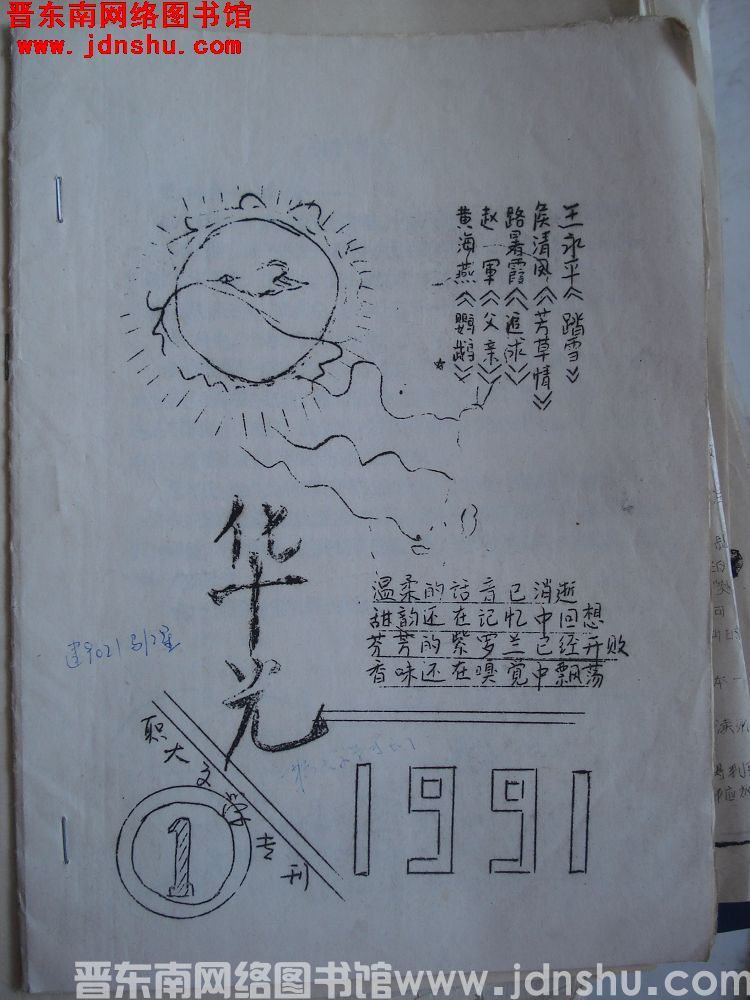 晋东南网络图书馆
www.jdnshu.com
王永平《踏雪》
侯清风《芳草情》
路暑霞《追求》
赵一軍《父亲》
黄海燕《鹦鹉》
华光
温柔的话音已消逝
甜韵还在记忆中回想
芬芳的紫罗兰已经开败
香味还在嗅觉中飘荡
职大文学专刊
1
1991
晋东南网络图书馆www.jdnshu.com